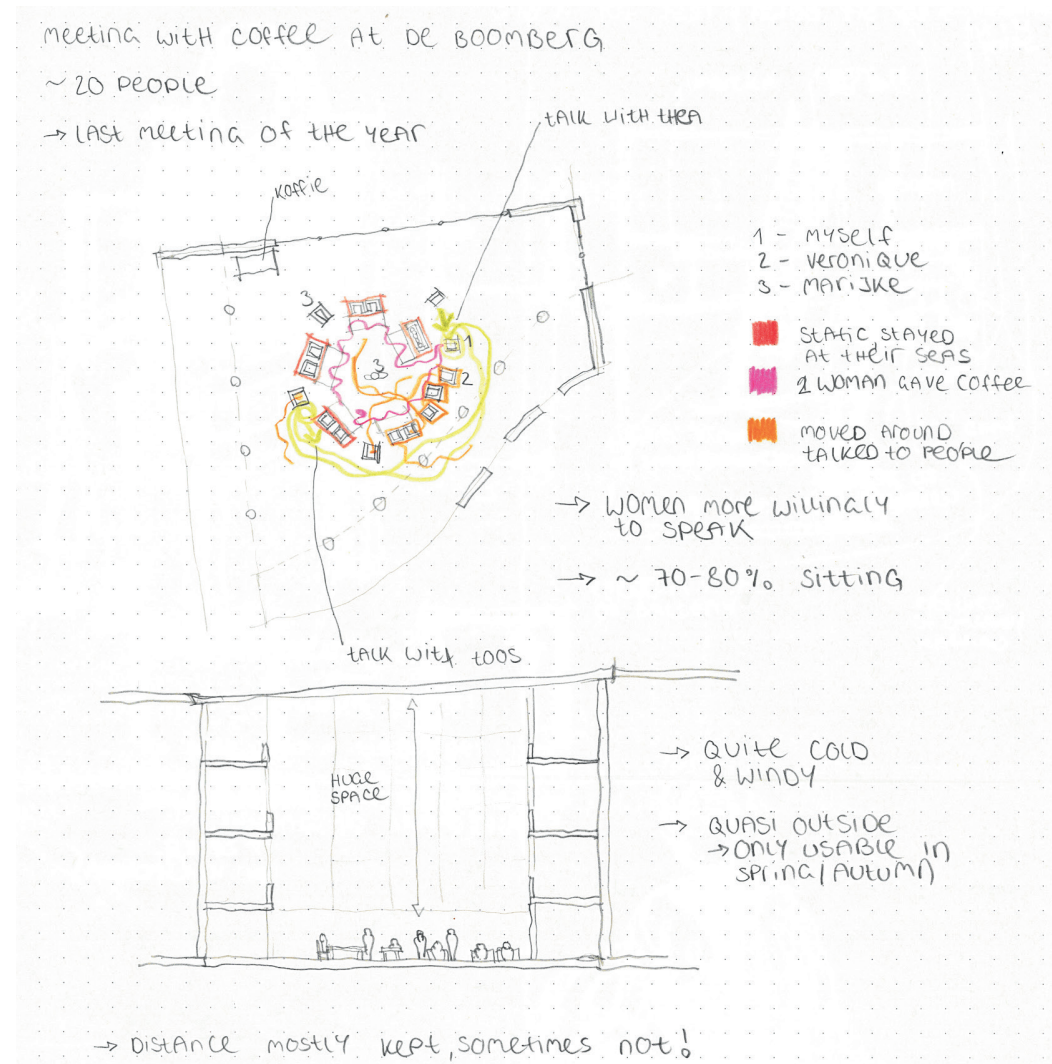 Meeting with coffee at De Boomberg
~ 20 people
→ last meeting of the year
talk with Thea
Koffie
1 - Myself
2 - Veronique
3 - Marijke
3
1
3
2
static stayed
at their seas
2 woman gave coffee
moved around
talked to people
→ women more willingly
to speak
→ ~ 70-80% sitting
talk with Toos
Huge
space
→ Quite cold
& windy
→ Quasi outside
→ only usable in
spring/autumn
→ Distance mostly kept, sometimes not!